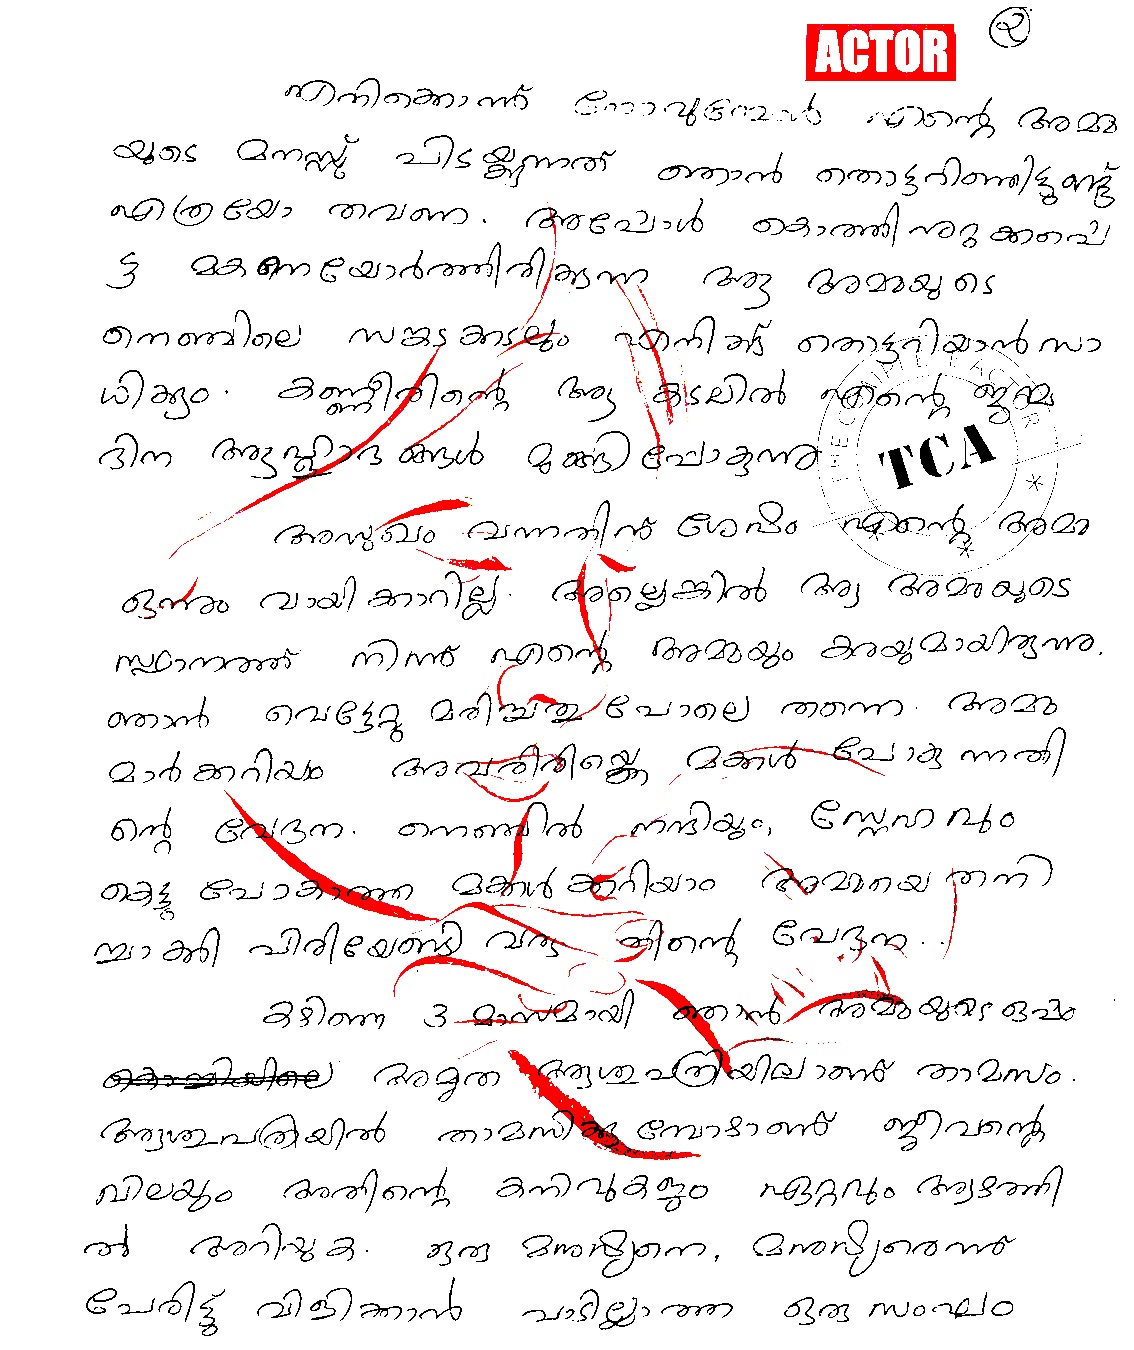 ACTOR
൨
എനിക്കൊന്ന് നോവുമ്പോൾ എന്റെ അമ്മ
യുടെ മനസ്സ് പിടയ്ക്കുന്നത് ഞാൻ തൊട്ടറിഞ്ഞിട്ടുണ്ട്
എത്രയോ തവണ. അപ്പോൾ കൊത്തിനുറുക്കപ്പെ
ട്ട മകനെയോർത്തിരിക്കുന്ന ആ അമ്മയുടെ
നെഞ്ചിലെ സങ്കടക്കടലും എനിക്ക് തൊട്ടറിയാൻ സാ
ധിക്കും. കണ്ണീരിന്റെ ആ കടലിൽ എന്റെ ജന്മ
ദിന ആഹ്ലാദങ്ങൾ മുങ്ങി പോകുന്നു
THE COMPLETE ACTOR
TCA
അസുഖം വന്നതിന് ശേഷം എന്റെ അമ്മ
ഒന്നും വായിക്കാറില്ല. അല്ലെങ്കിൽ ആ അമ്മയുടെ
സ്ഥാനത്ത് നിന്ന് എന്റെ അമ്മയും കരയുമായിരുന്നു.
ഞാൻ വെട്ടേറ്റു മരിച്ചത് പോലെ തന്നെ. അമ്മ
മാർക്കറിയാം അവരിരിയ്ക്കെ മക്കൾ പോകുന്നതി
ന്റെ വേദന. നെഞ്ചിൽ നന്ദിയും, സ്നേഹവും
കെട്ടു പോകാത്ത മക്കൾക്കറിയാം അമ്മയെ തനി
ച്ചാക്കി പിരിയേണ്ടി വരുന്നതിന്റെ വേദന..
കഴിഞ്ഞ 3 മാസമായി ഞാൻ അമ്മയുടെ ഒപ്പം
കൊച്ചിയിലെ അമൃത ആശുപത്രിയിലാണ് താമസം.
ആശുപത്രിയിൽ താമസിക്കുമ്പോഴാണ് ജീവന്റെ
വിലയും അതിന്റെ കനിവുകളും ഏറ്റവും ആഴത്തി
ൽ അറിയുക. ഒരു മനുഷ്യനെ, മനുഷ്യരെന്ന്
പേരിട്ട് വിളിക്കാൻ പാടില്ലാത്ത ഒരു സംഘം